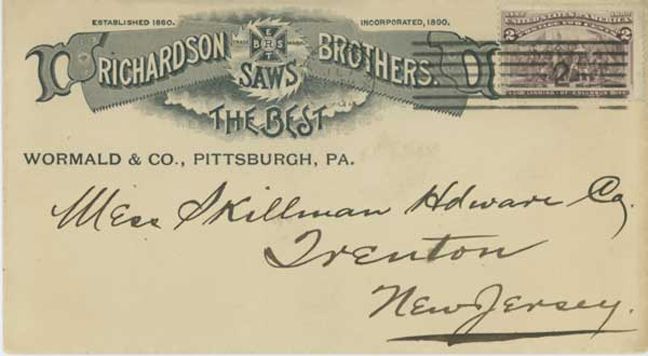 ESTABLISHED 1860.
INCORPORATED, 1890.
RICHARDSON BROTHERS.
BEST
SAWS
THE BEST
UNITED STATES OF AMERICA
2 2
LANDING OF COLUMBUS
WORMALD & CO., PITTSBURGH, PA.
Mess Skillman Hdware Co.
Trenton
New Jersey.